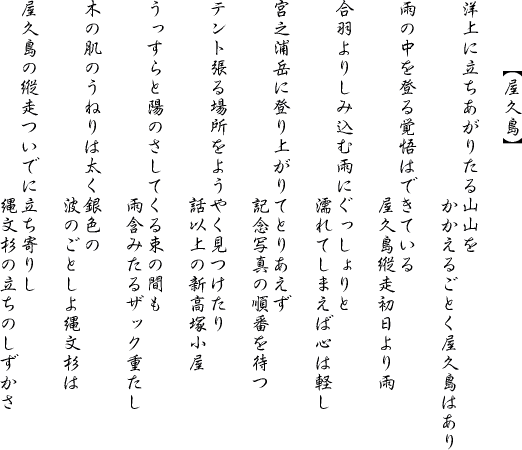 【屋久島】
洋上に立ちあがりたる山山を
かかえるごとく屋久島はあり
雨の中を登る覚悟はできている
屋久島縦走初日より雨
合羽よりしみ込む雨にぐっしょりと
濡れてしまえば心は軽し
宮之浦岳に登り上がりてとりあえず
記念写真の順番を待つ
テント張る場所をようやく見つけたり
話以上の新高塚小屋
うっすらと陽のさしてくる束の間も
雨含みたるザック重たし
木の肌のうねりは太く銀色の
波のごとしよ縄文杉は
屋久島の縦走ついでに立ち寄りし
縄文杉の立ちのしずかさ